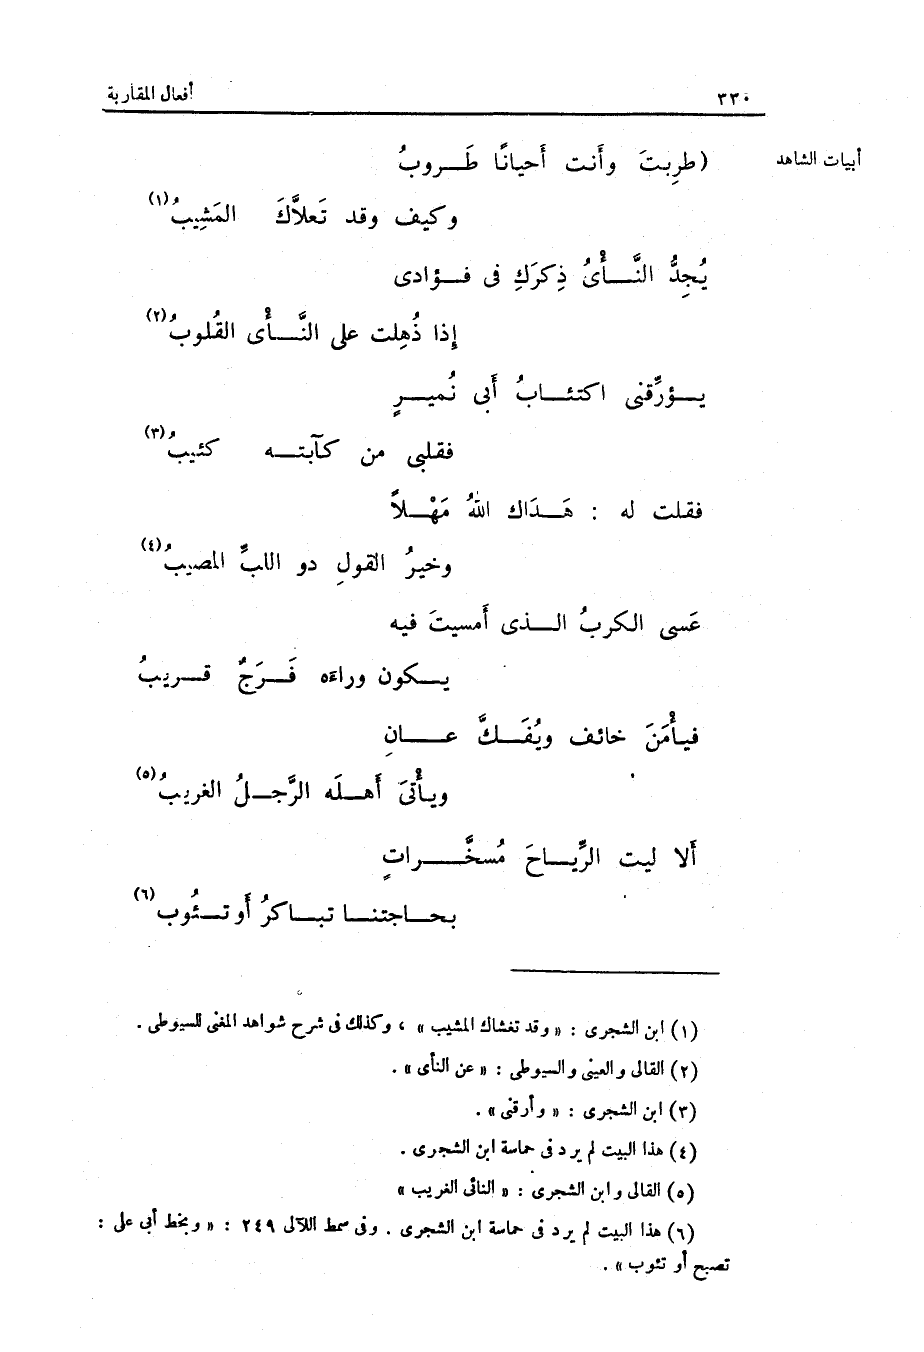 ٣٣٠ أفعال المقاربة
أبيات الشاهد
( طرِبتَ وأَنت أَحيانًا طَـــروبُ
وكيف وقد تَعلاَّكَ المَشِيبُ (١)
يُجِدُّ النَّـــأْىُ ذِكرَكِ فى فــؤادى
إذا ذُهِلت على النَّـــأْى القُلوبُ (٢)
يــؤرِّقنى اكتئــابُ أَبى نُميــرٍ
فقلبى من كآبتــه كئيبُ (٣)
فقلت له : هَــدَاك اللهُ مَهْــلاً
وخيرُ القولِ ذو اللبِّ المصيبُ (٤)
عَسى الكربُ الــذى أَمسيتَ فيه
يــكون وراءَه فَــرَجٌ قــريبُ
فيأْمَنَ خائف ويُفَــكَّ عـــانٍ
ويأْتىَ أَهــلَه الرَّجــلُ الغريبُ (٥)
أَلا ليت الرِّيــاحَ مُسخَّـــراتٍ
بحــاجتنــا تبــاكرُ أَو تــئُوب (٦)
(١) ابن الشجرى : « وقد تغشاك المشيب » ، وكذلك فى شرح شواهد المغنى للسيوطى .
(٢) القالى والعينى والسيوطى : « عن النأى » .
(٣) ابن الشجرى : « وأرقنى » .
(٤) هذا البيت لم يرد فى حماسة ابن الشجرى .
(٥) القالى وابن الشجرى : « النائى الغريب »
(٦) هذا البيت لم يرد فى حماسة ابن الشجرى . وفى سمط اللآلى ٢٤٩ : « وبخط أبى على :
تصبح أو تئوب » .